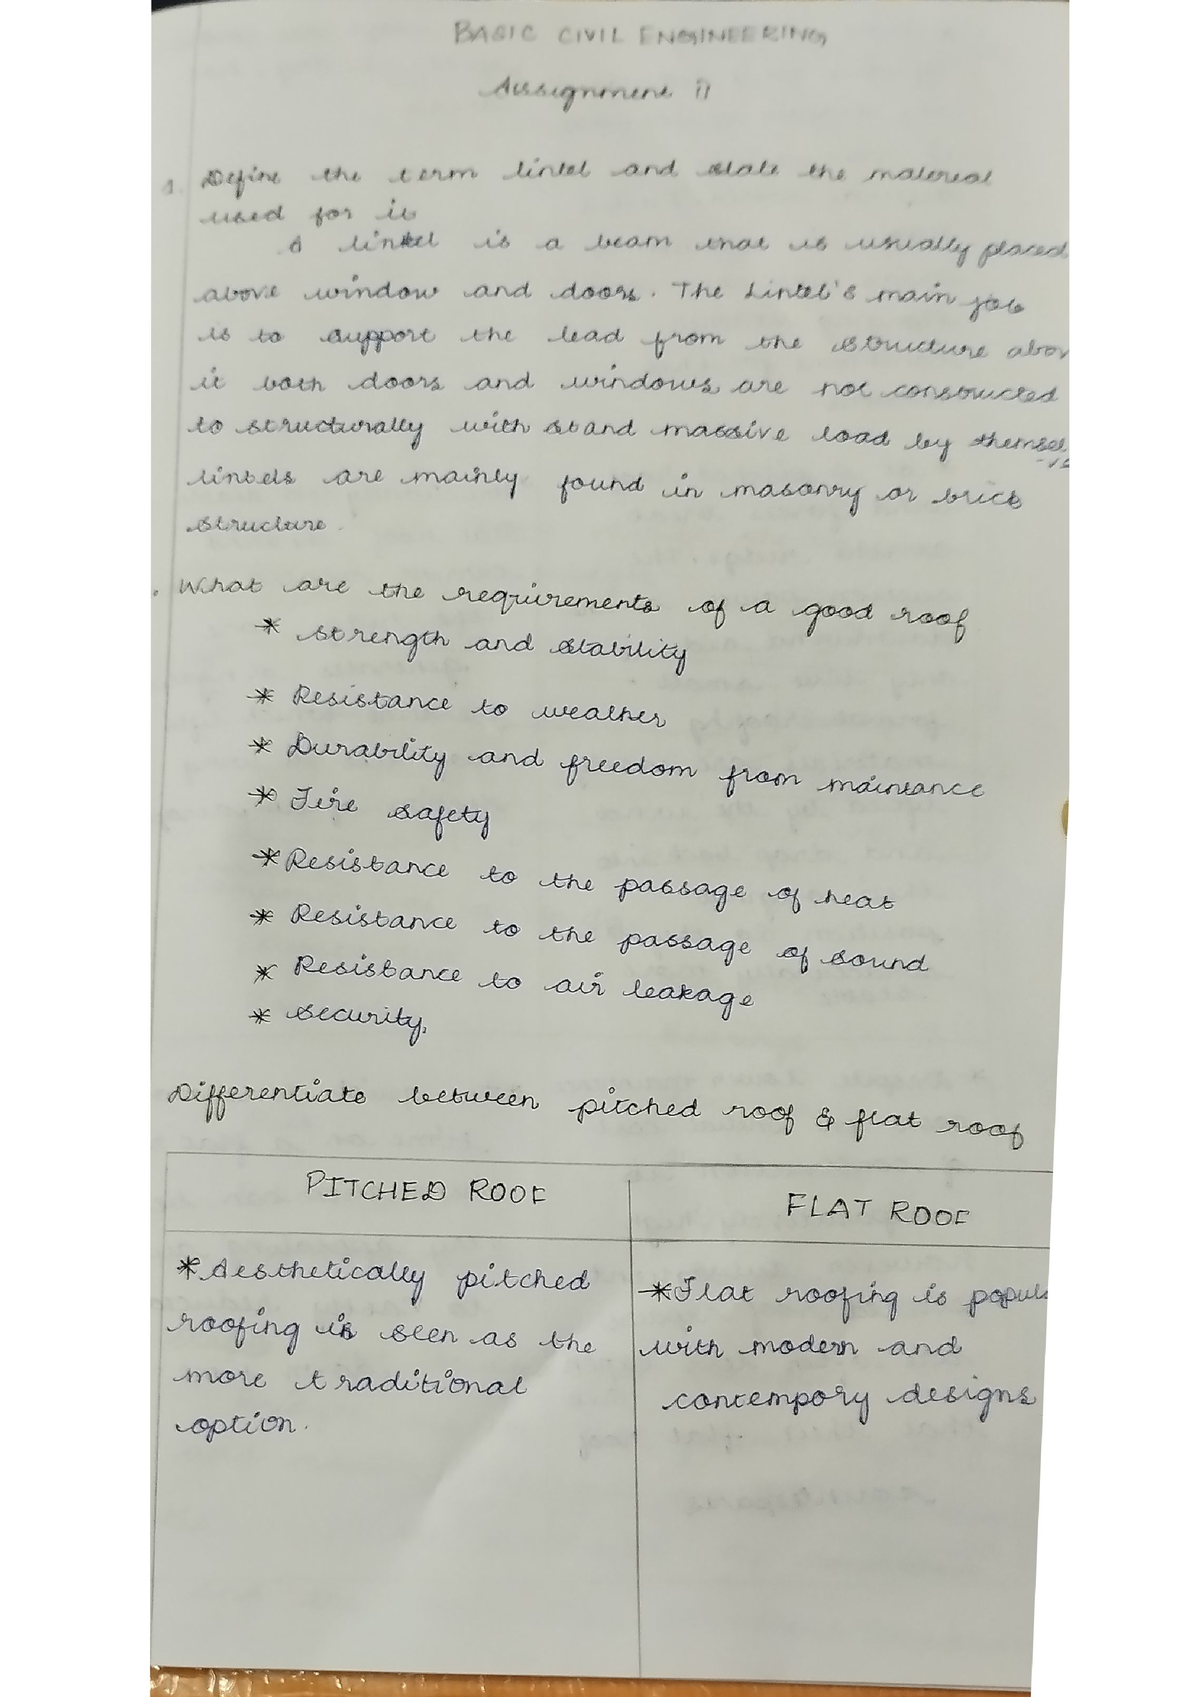 BASIC CIVIL ENGINEERING
Assignment ii
1. Define the term lintel and state the material
used for it
A lintel is a beam that is usually placed
above window and doors. The Lintel's main job
is to support the load from the structure above
it both doors and windows are not constructed
to structurally withstand massive load by themsel
lintels are mainly found in masonry or brick
structure.
What are the requirements of a good roof
* Strength and stability
* Resistance to weather
* Durability and freedom from maintance
* Fire safety
* Resistance to the passage of heat
* Resistance to the passage of sound
* Resistance to air leakage
* Security.
Differentiate between pitched roof & flat roof
PITCHED ROOF
FLAT ROOF
* Aesthetically pitched
roofing is seen as the
more traditional
option.
* Flat roofing is popula
with modern and
contempory designs